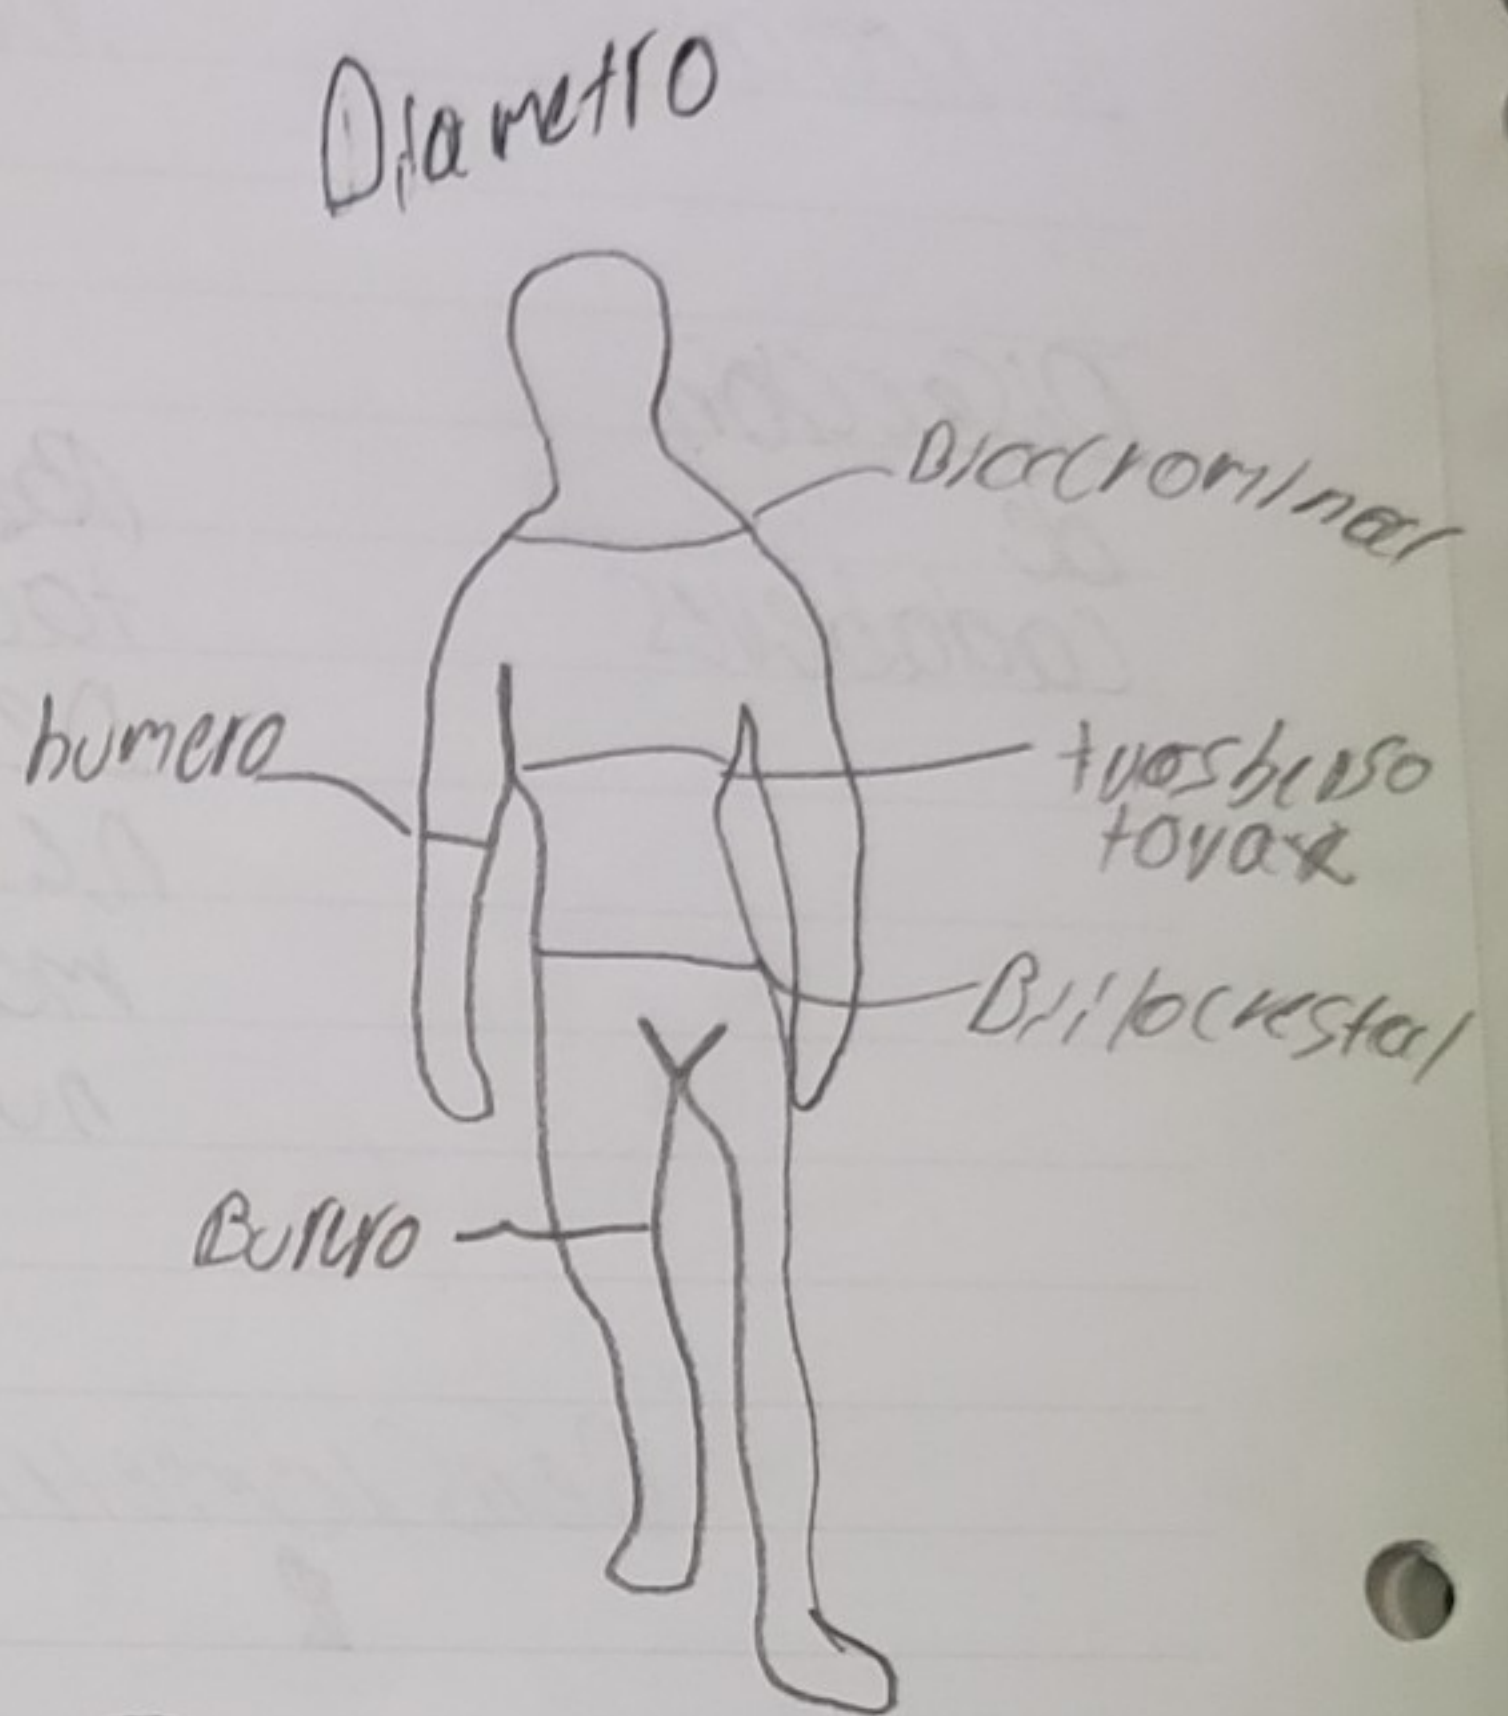 Diametro
Biacrominal
humero
trasberso
torax
Biilocrestal